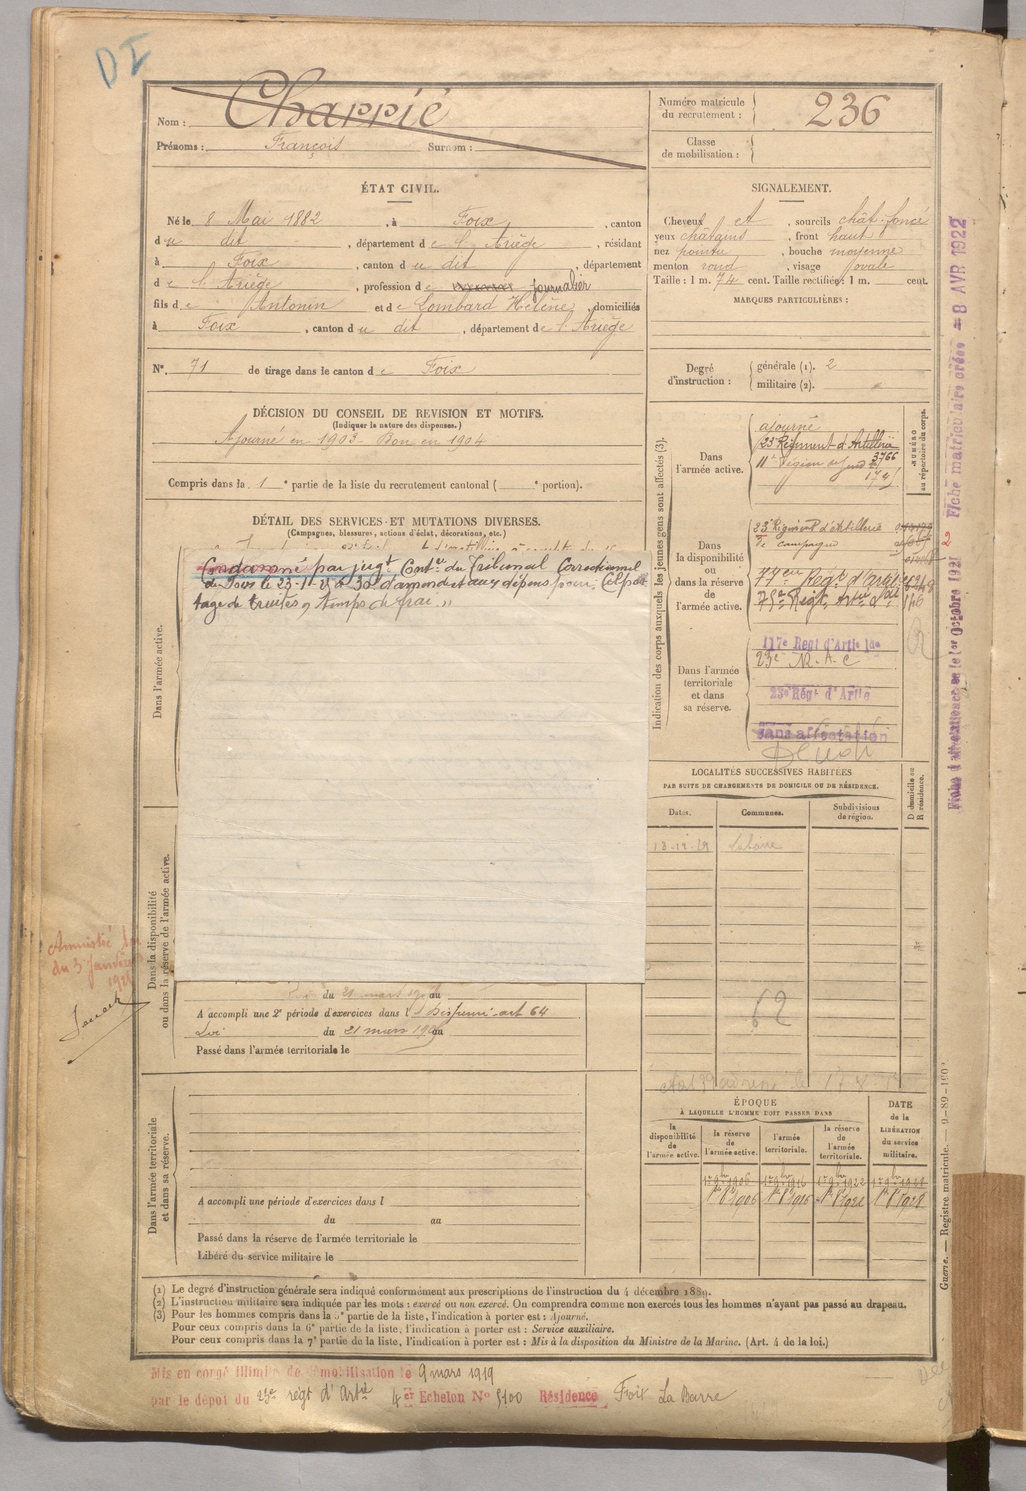 DI
Nom : Charrié
Prénoms : François Surnom :
Numéro matricule du recrutement : 236
Classe de mobilisation :
ÉTAT CIVIL.
Né le 8 Mai 1882, à Foix, canton
du dit, département de l'Ariège, résidant
à Foix, canton du dit, département
de l'Ariège, profession de journalier
fils de Antonin et de Lombard Hélène, domiciliés
à Foix, canton du dit, département de l'Ariège
N°. 71 de tirage dans le canton de Foix
SIGNALEMENT.
Cheveux et, sourcils chât. foncé
yeux châtains, front haut
nez pointu, bouche moyenne
menton rond, visage ovale
Taille : 1 m. 74 cent. Taille rectifiée : 1 m. cent.
MARQUES PARTICULIÈRES :
Degré d'instruction : générale (1). 2
militaire (2).
DÉCISION DU CONSEIL DE REVISION ET MOTIFS.
(Indiquer la nature des dispenses.)
Ajourné en 1903 - Bon en 1904
Compris dans la 1e partie de la liste du recrutement cantonal ( e portion).
DÉTAIL DES SERVICES ET MUTATIONS DIVERSES.
(Campagnes, blessures, actions d'éclat, décorations, etc.)
Condamné par jugt Contre du Tribunal Correctionnel
de Foix le 23-11- à 30 d'amende et aux dépens pour Colpor
tage de truites en temps de frai."
Dans l'armée active.
Dans la disponibilité
ou dans la réserve de l'armée active.
Amnistié Loi
du 3 Janvier
Loi du 21 mars 1905 au
A accompli une 2e période d'exercices dans l Dispensé art 64
Loi du 21 mars 1905 au
Passé dans l'armée territoriale le
Dans l'armée territoriale
et dans sa réserve.
A accompli une période d'exercices dans l
du au
Passé dans la réserve de l'armée territoriale le
Libéré du service militaire le
Indication des corps auxquels les jeunes gens sont affectés (3).
NUMÉRO au répertoire du corps.
Dans l'armée active.
ajourné
23e Régiment d'Artillerie
3766
Dans la disponibilité ou dans la réserve de l'armée active.
23e Régiment d'Artillerie
de campagne
77e Regt d'
Dans l'armée territoriale et dans sa réserve.
117e Regt d'Artie lde
23e R.A.C
23e Régt d'Artie
Sans affectation
LOCALITÉS SUCCESSIVES HABITÉES
PAR SUITE DE CHANGEMENTS DE DOMICILE OU DE RÉSIDENCE.
Dates. Communes. Subdivisions de région. D domicile ou R résidence.
Labarre
62
ÉPOQUE
À LAQUELLE L'HOMME DOIT PASSER DANS
la disponibilité de l'armée active. la réserve de l'armée active. l'armée territoriale. la réserve de l'armée territoriale.
DATE de la LIBÉRATION du service militaire.
1er 8bre 1906 1er 8bre 1916 1er 8bre 1922 1er 8bre 1928
Fiche d'affectation créée le 1er Octobre 1921 Fiche matriculaire créée = 8 AVR 1922
Guerre. — Registre matricule. —
(1) Le degré d'instruction générale sera indiqué conformément aux prescriptions de l'instruction du 4 décembre 1889.
(2) L'instruction militaire sera indiquée par les mots : exercé ou non exercé. On comprendra comme non exercés tous les hommes n'ayant pas passé au drapeau.
(3) Pour les hommes compris dans la 5e partie de la liste, l'indication à porter est : Ajourné.
Pour ceux compris dans la 6e partie de la liste, l'indication à porter est : Service auxiliaire.
Pour ceux compris dans la 7e partie de la liste, l'indication à porter est : Mis à la disposition du Ministre de la Marine. (Art. 4 de la loi.)
Mis en congé illimité de démobilisation le 9 mars 1919
par le dépôt du 23e régt d'Artie 4e Echelon N° 5100 Résidence Foix La Barre